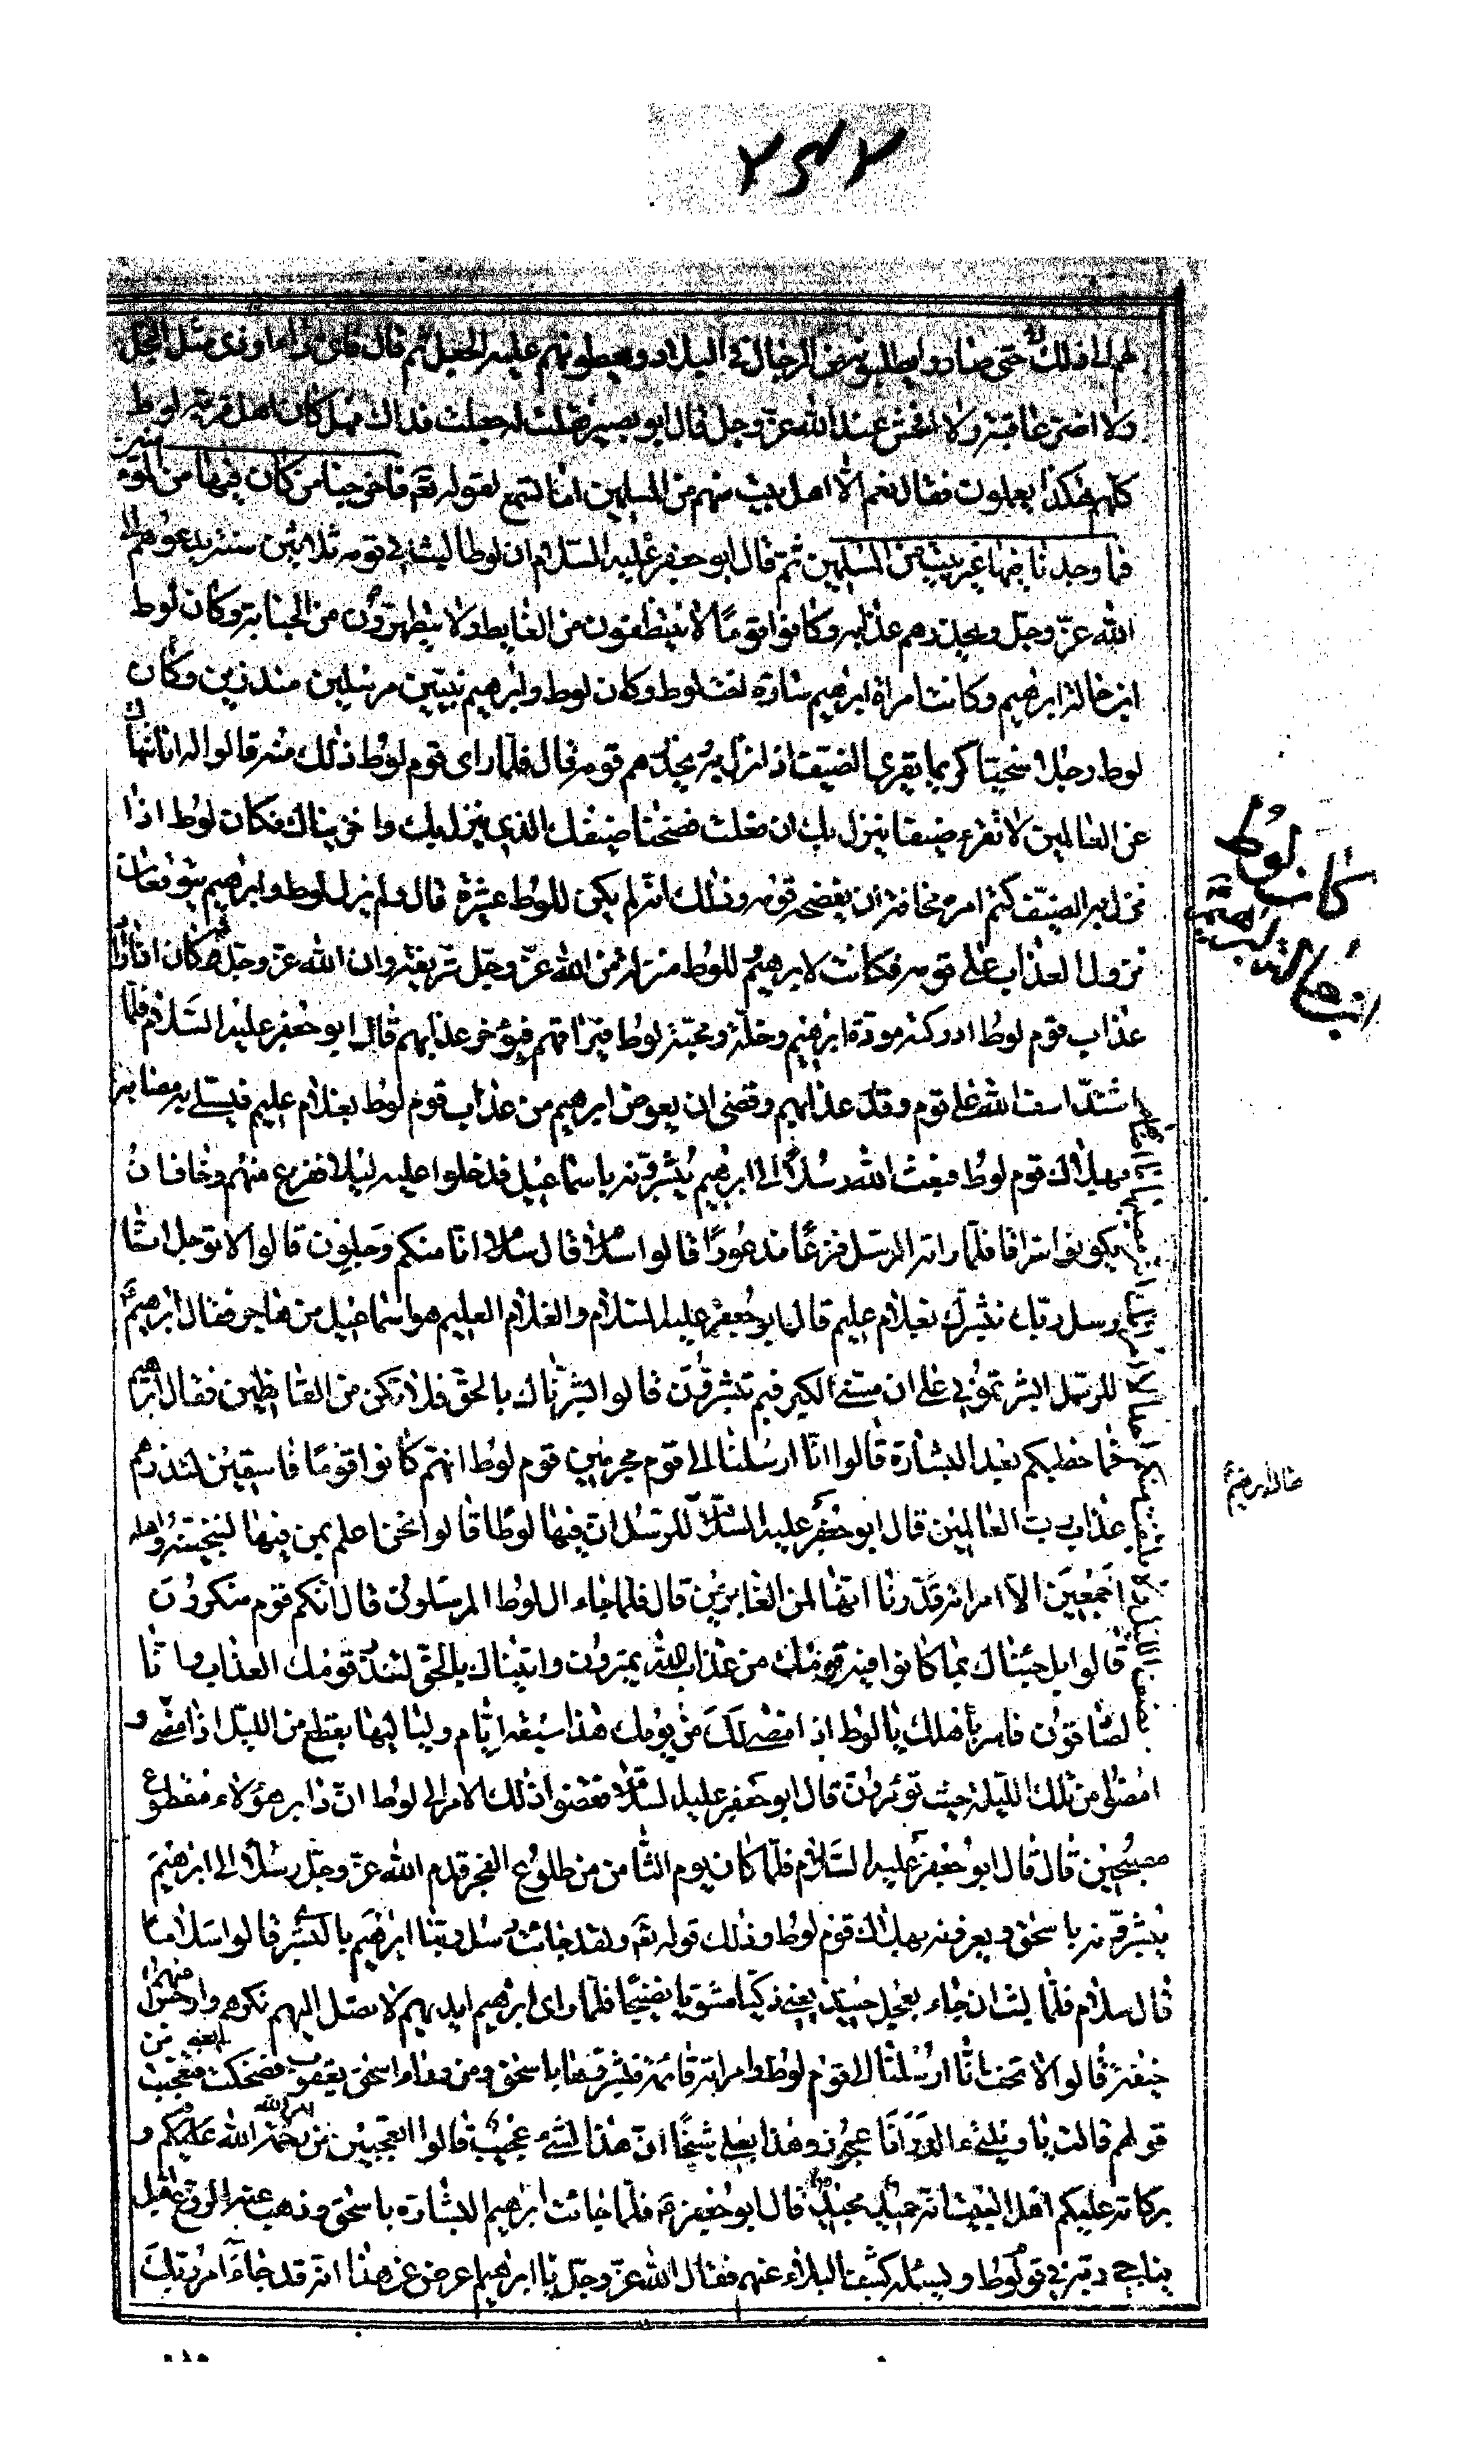 لهم لذلك حتى صاروا يطلبونه من الرجال في البلاد ويعطونهم عليه الجعل ثم قال فاي داء ادوى من البخل
ولا اضر عاقبة ولا افحش عند الله عز وجل قال ابو بصير فقلت له جعلت فداك فهل كان اهل قرية لوط
كلهم هكذا يعملون فقال نعم الا اهل بيت منهم من المسلمين اما تسمع لقوله تعم فاخرجنا من كان فيها من المؤمنين
فما وجدنا فيها غير بيت من المسلمين ثم قال ابو جعفر عليه السلام ان لوطا لبث في قومه ثلاثين سنة يدعوهم الى
الله عز وجل ويحذرهم عذابه وكانوا قوما لا يتنظفون من الغايط ولا يتطهرون من الجنابة وكان لوط
ابن خالة ابرهيم وكانت امراة ابرهيم سارة اخت لوط وكان لوط وابرهيم نبيين مرسلين منذرين وكان
لوط رجلا سخيا كريما يقري الضيف اذا نزل به يحذرهم قومه قال فلما راى قوم لوط ذلك منه قالوا له انا ننهاك
عن العالمين لا تقري ضيفا ينزل بك ان فعلت فضحنا ضيفك الذي ينزل بك واخزيناك فكان لوط اذا
نزل به الضيف كتم امره مخافة ان يفضحه قومه وذلك انه لم يكن للوط عشيرة قال ولم يزل لوط وابرهيم يتوقعان
نزول العذاب على قومه فكانت لابرهيم وللوط منزلة من الله عز وجل شريفة وان الله عز وجل كان اذا اراد
عذاب قوم لوط ادركته مودة ابرهيم وخلته ومحبة لوط فيراقبهم فيؤخر عذابهم قال ابو جعفر عليه السلام فلما
اشتد اسف الله على قوم لوط وقدر عذابهم وقضى ان يعوض ابرهيم من عذاب قوم لوط بغلام عليم فيسلي به مصابه
بهلاك قوم لوط فبعث الله رسلا الى ابرهيم يبشرونه باسماعيل فدخلوا عليه ليلا ففزع منهم وخاف ان
يكونوا سراقا فلما راته الرسل فزعا مذعورا قالوا سلاما قال سلام انا منكم وجلون قالوا لا توجل انا
رسل ربك نبشرك بغلام عليم قال ابو جعفر عليه السلام والغلام العليم هو اسماعيل من هاجر فقال ابرهيم
للرسل ابشرتموني على ان مسني الكبر فبم تبشرون قالوا بشرناك بالحق فلا تكن من القانطين فقال ابرهيم
فما خطبكم بعد البشارة قالوا انا ارسلنا الى قوم مجرمين قوم لوط انهم كانوا قوما فاسقين لننذرهم
عذاب رب العالمين قال ابو جعفر عليه السلام للرسل ان فيها لوطا قالوا نحن اعلم بمن فيها لننجينه واهله
اجمعين الا امراته قدرنا انها لمن الغابرين قال فلما جاء ال لوط المرسلون قال انكم قوم منكرون
قالوا بل جئناك بما كانوا فيه قومك من عذاب الله يمترون واتيناك بالحق لننذر قومك العذاب وانا
لصادقون فاسر باهلك يا لوط اذا مضى لك من يومك هذا سبعة ايام ولياليها بقطع من الليل اذا مضى و
امضوا من تلك الليلة حيث تؤمرون قال ابو جعفر عليه السلام فقضوا ذلك الامر الى لوط ان دابر هؤلاء مقطوع
مصبحين قال قال ابو جعفر عليه السلام فلما كان يوم الثامن من طلوع الفجر قدم الله عز وجل رسلا الى ابرهيم
يبشرونه باسحق ويعرفنه بهلاك قوم لوط وذلك قوله تعم ولقد جائت رسلنا ابرهيم بالبشرى قالوا سلاما
قال سلام فلما لبث ان جاء بعجل حنيذ يعني ذكيا مشويا نضيجا فلما راى ابرهيم ايديهم لا تصل اليهم نكرهم واوجس منهم
خيفة قالوا لا تخف انا ارسلنا الى قوم لوط وامراته قائمة فبشرناها باسحق ومن وراء اسحق يعقوب فضحكت يعني فتعجبت من
قولهم قالت يا ويلتى ءالد وانا عجوز وهذا بعلي شيخا ان هذا لشيء عجيب قالوا اتعجبين من امر الله رحمة الله عليكم و
بركاته عليكم اهل البيت انه حميد مجيد قال ابو جعفر فلما جائت ابرهيم البشارة باسحق وذهب عنه الروع اقبل
يناجي ربه في قوم لوط ويسئله كشف البلاء عنهم فقال الله عز وجل يا ابرهيم اعرض عن هذا انه قد جاء امر ربك
كان لوط
ابن خالة ابرهيم
خالة ابرهيم